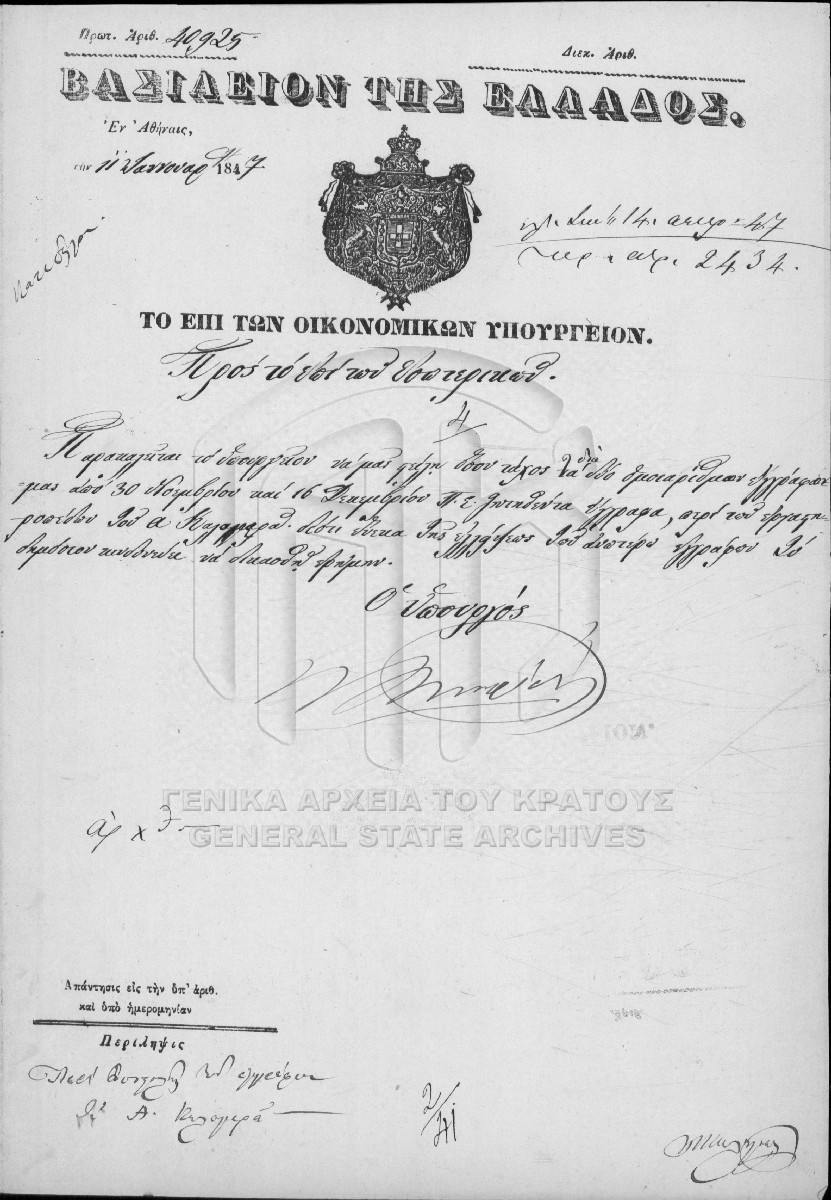 Πρωτ. Ἀριθ. 40925
Διεκ. Ἀριθ.
ΒΑΣΙΛΕΙΟΝ ΤΗΣ ΕΛΛΑΔΟΣ.
Ἐν Ἀθήναις,
τὴν 11 Ἰανουαρ 1847
14 47
2434.
ΤΟ ΕΠΙ ΤΩΝ ΟΙΚΟΝΟΜΙΚΩΝ ΥΠΟΥΡΓΕΙΟΝ.
Πρὸς τὸ ἐπὶ τῶν Ἐσωτερικῶν.
Παρακαλεῖται τὸ Ὑπουργεῖον νὰ μᾶς στείλῃ ὅσον τάχος τὰ διὰ δύο ὁμοιαρίθμων ἐγγράφων
μας ἀπὸ 30 Νοεμβρίου καὶ 16 Δεκεμβρίου Π. Ε. ζητηθέντα ἔγγραφα, περὶ τῶν ἐργαστη-
ροπέδων τοῦ Α Καλαμαρᾶ. διότι ἕνεκα τῆς ἐλλείψεως τοῦ ἀνωτέρω ἐγγράφου τὸ
δημόσιον κινδυνεύει νὰ δικασθῇ ἐρήμην.
Ὁ Ὑπουργός
ΓΕΝΙΚΑ ΑΡΧΕΙΑ ΤΟΥ ΚΡΑΤΟΥΣ
GENERAL STATE ARCHIVES
Ἀπάντησις εἰς τὴν ὑπ' ἀριθ.
καὶ ὑπὸ ἡμερομηνίαν
Περίληψις
Περὶ ἀποστολῆς τῶν ἐγγράφων
τοῦ Α. Καλαμαρᾶ